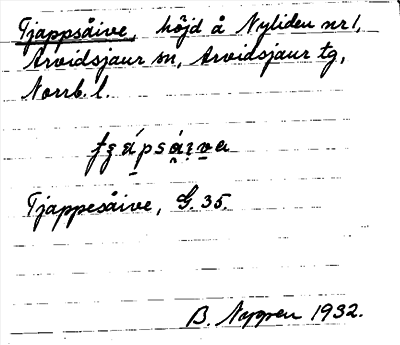 Tjappsåive, höjd å Nyliden nr 1,
Arvidsjaur sn, Arvidsjaur tg,
Norrb. l.
Tjappesåive, G. 35.
B. Nappen 1932.